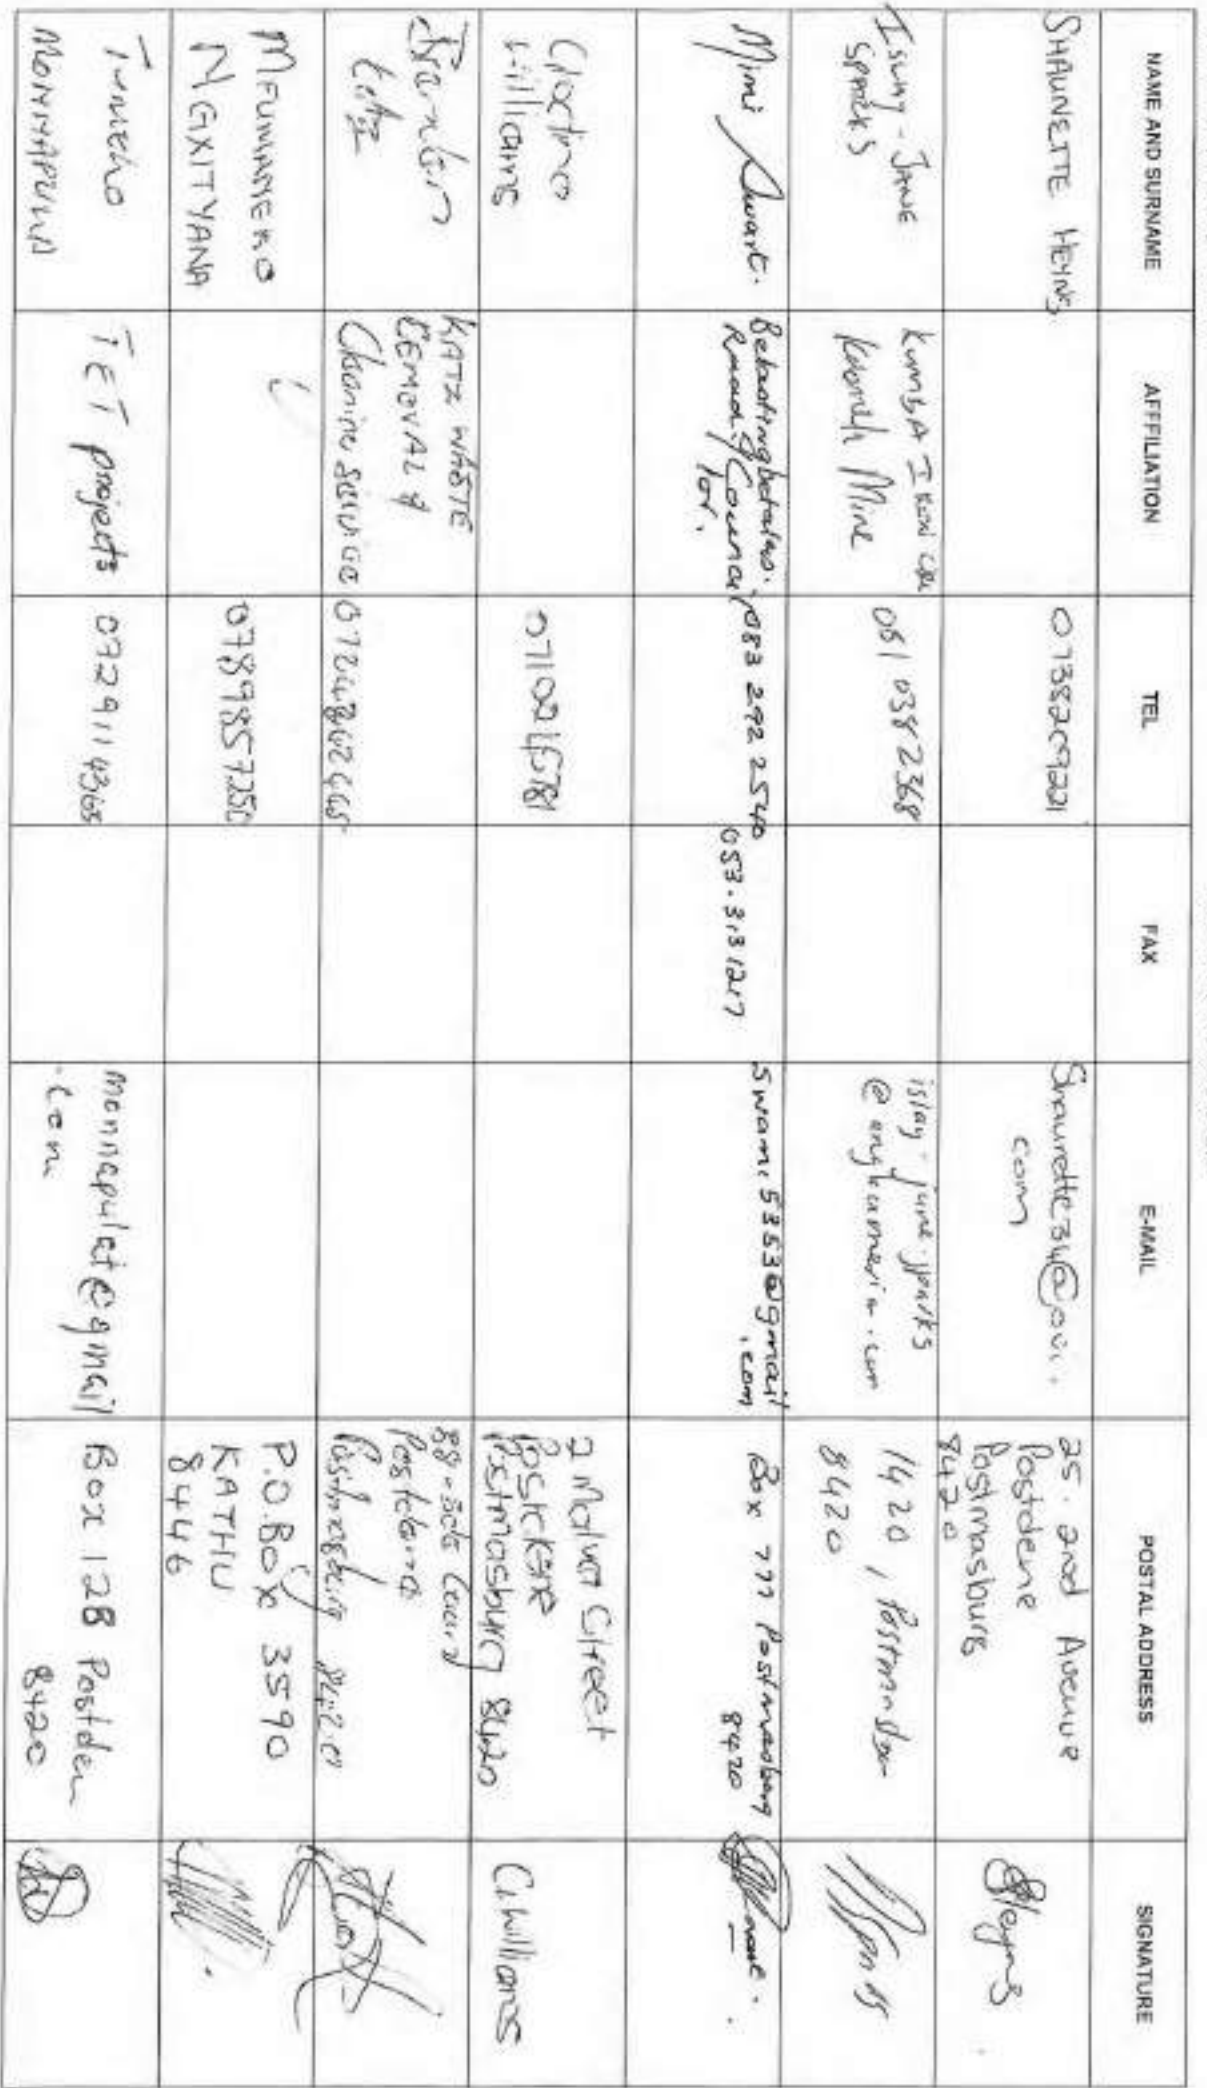 NAME AND SURNAME
AFFFILIATION
TEL
FAX
E-MAIL
POSTAL ADDRESS
SIGNATURE
SHAUNETTE HEYNS
Shaunette34@ovi.
com
25. 2nd Avenue
Postdene
Postmasburg
8420
Heyns
ISLAY-JANE
SPARKS
KUMBA IRON ORE
Kolomela Mine
081 038 2368
islay-jane.sparks
@angloamerican.com
1420, Postmasburg
8420
Mimi Swart.
083 292 2540
053.3131217
Swami5353@gmail
.com
Box 777 Postmasburg
8420
Williams
2 Malva Street
Postdene
Postmasburg 8420
C. Williams
KATZ WASTE
REMOVAL &
Cleaning services
Postdene
Postmasburg 8420
MFUMANEKO
NGXITYANA
0789857250
P.O.Box 3590
KATHU
8446
Tumelo
MONNAPULA
TET projects
0729114365
monnapulat@gmail
.com
Box 128 Postden
8420